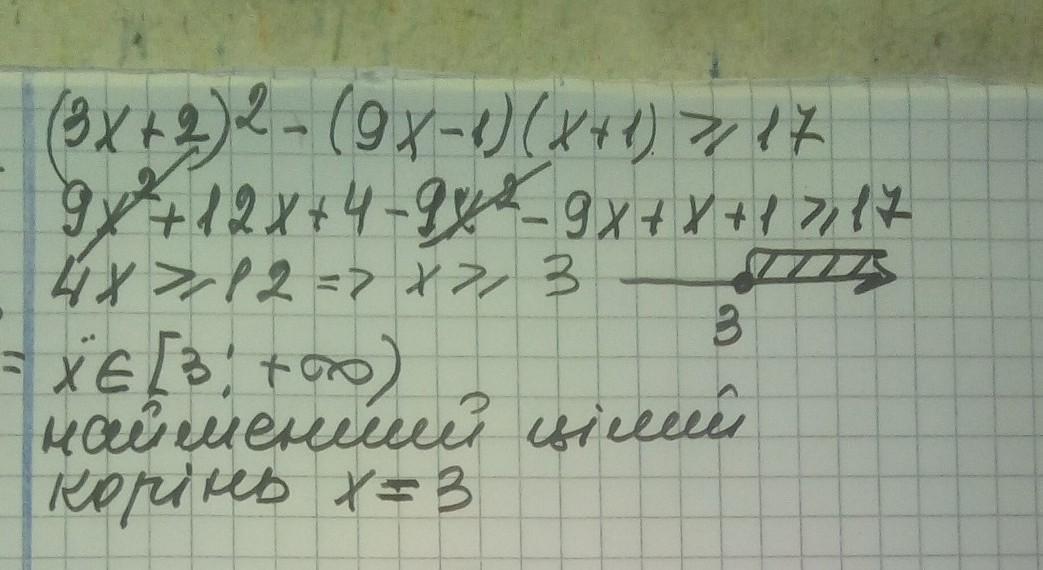 (3x+2)² - (9x-1)(x+1) ⩾ 17
9x² + 12x + 4 - 9x² - 9x + x + 1 ⩾ 17
4x ⩾ 12 => x ⩾ 3
3
= x ∈ [3; +∞)
найменший цілий
корінь x = 3